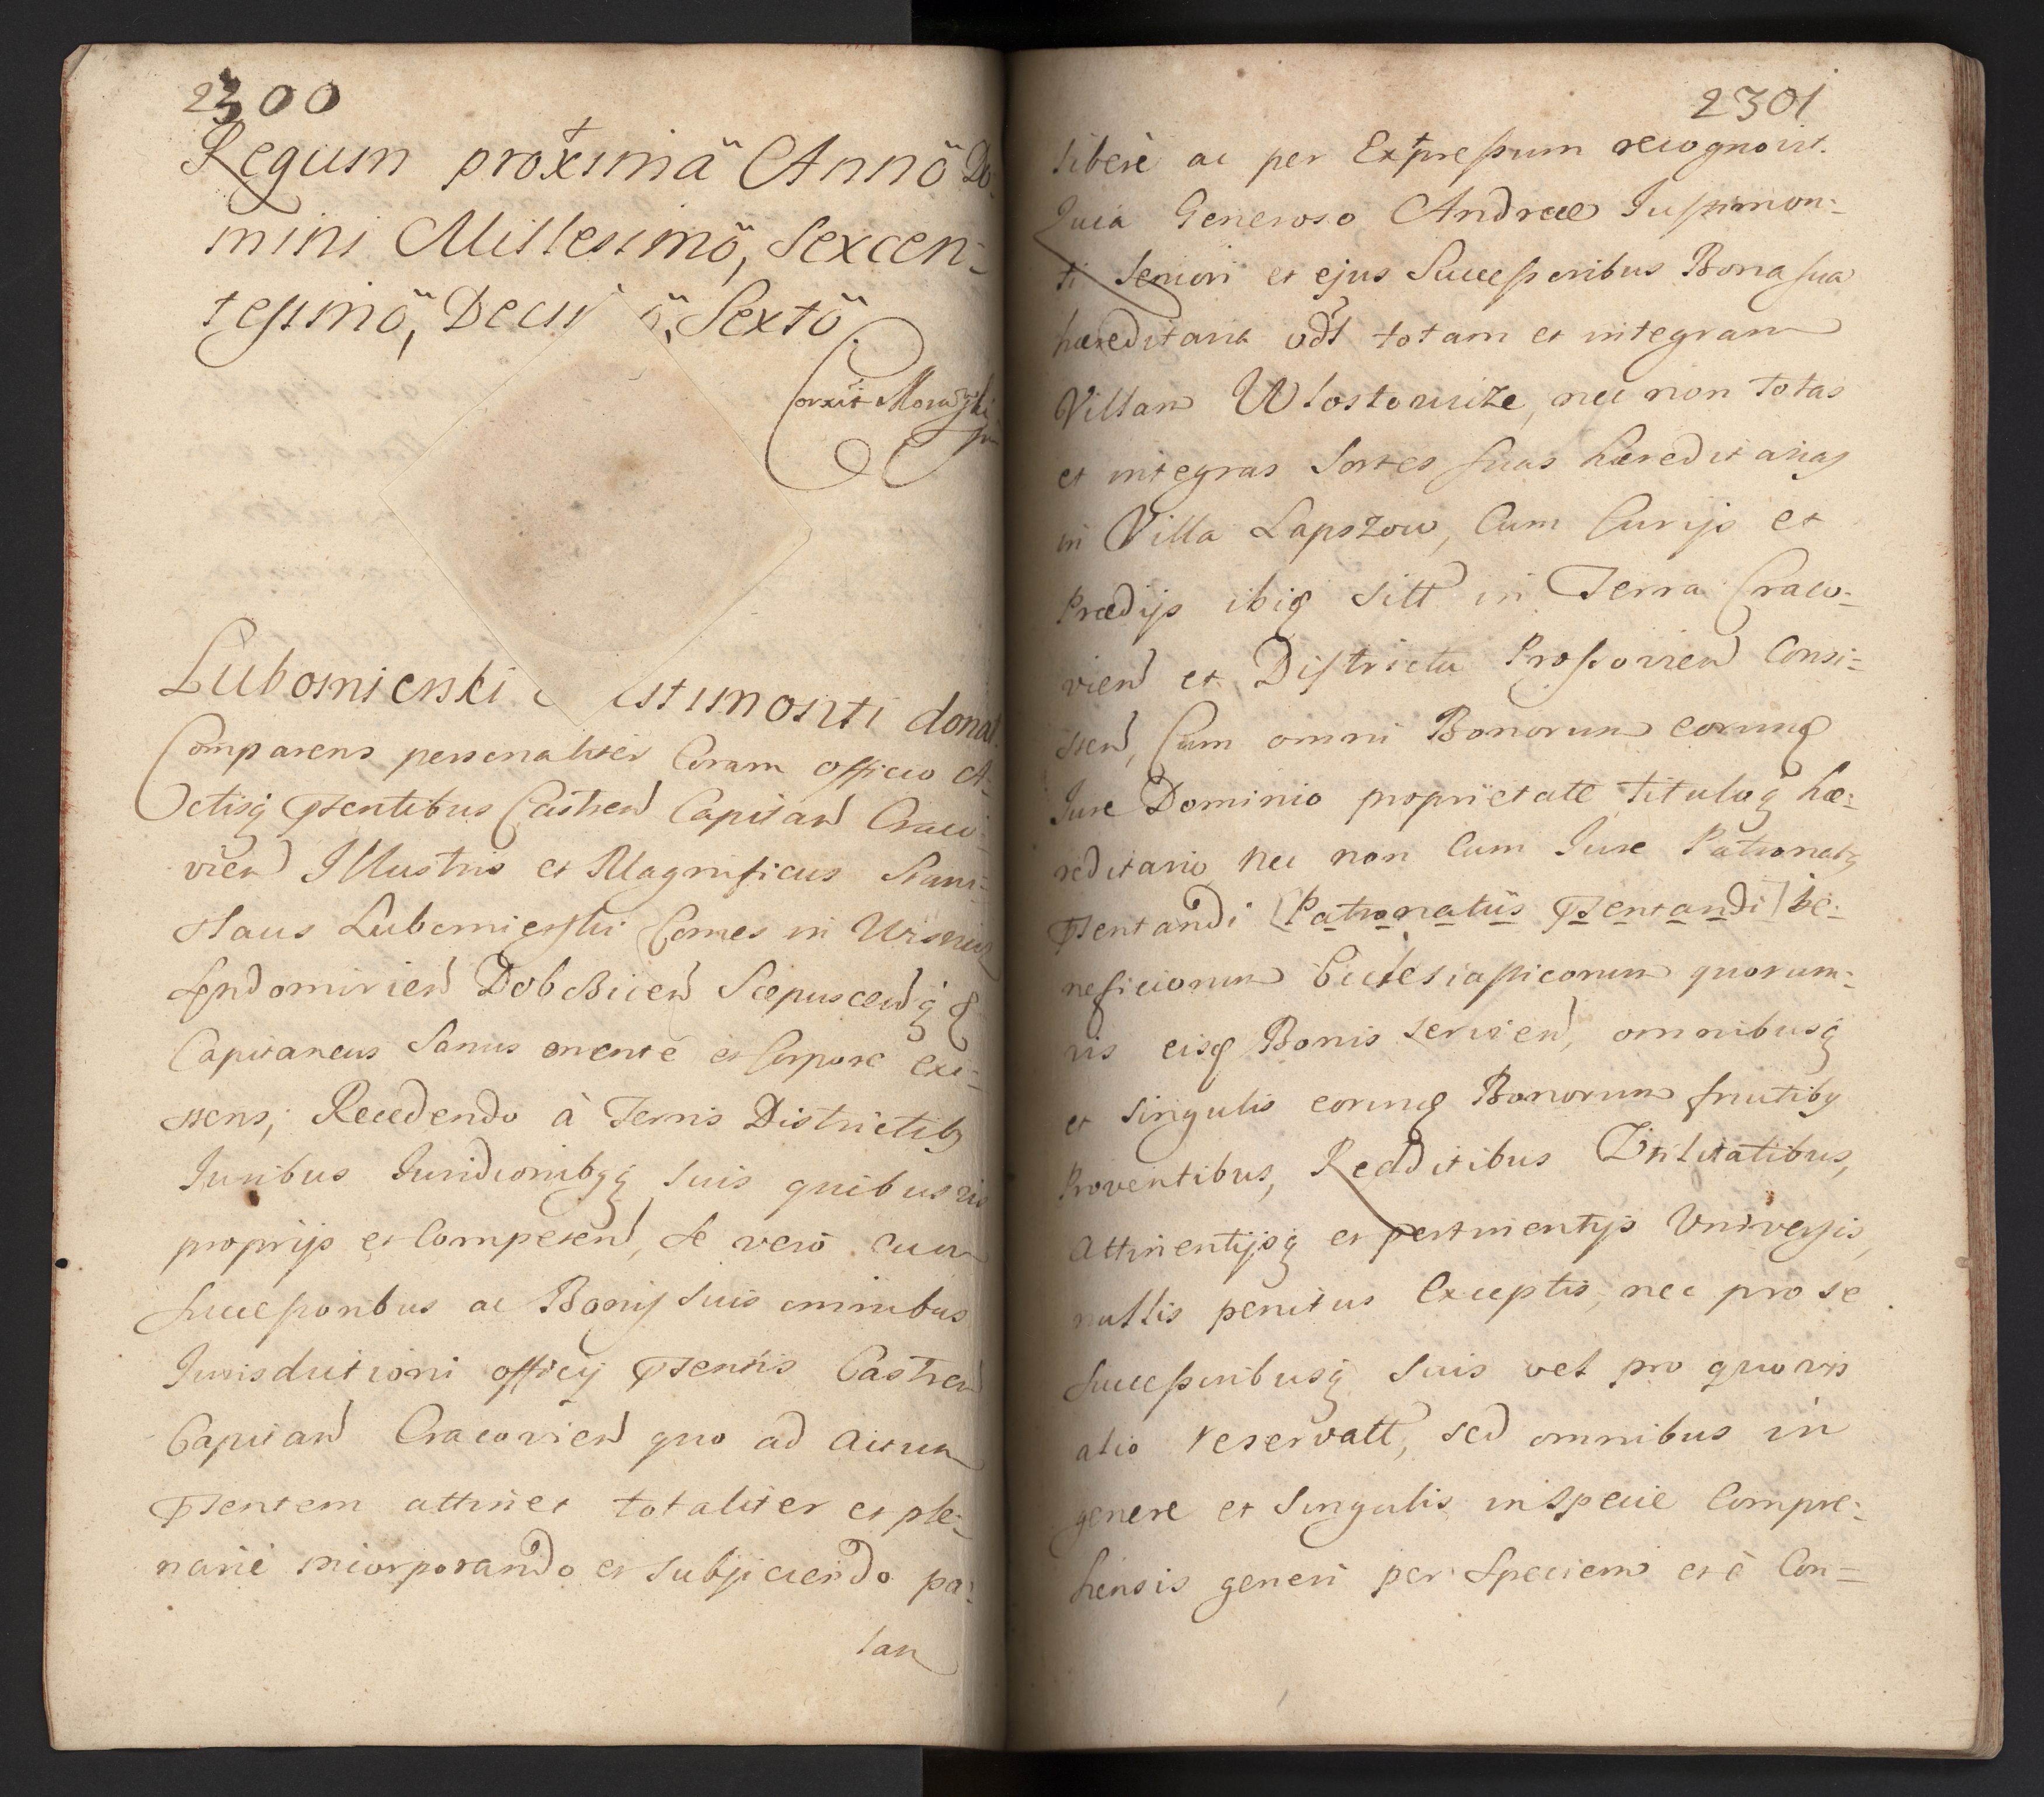 2300
Regum proximâ Annô Do-
mini Millesimô, Sexcen-
tesimô, Sextô.
Corxit
Lubomierski donat.
Comparens personaliter Coram officio A-
ctisq Pñtentibus Castren Capitan Craco-
vien Illustris et Magnificus Stani-
slaus Lubomierski Comes in Wisnicz
Sendomirien Dobcicen Scepuscenq &
Capitaneus Sanus mente et Corpore exi-
stens, Recedendo à Terris Districtibq
Juribus Juridionibqq suis quibusvis
proprijs et Competen, se verò cum
Successoribus ac Bonis suis omnibus
Jurisdictioni officij Psentis Castren
Capitan Cracovien quo ad actum
Psentem attinet totaliter et ple-
narie incorporando et subijciendo pa-
lam
2301
liberè ac per Expressum recognovit.
Quia Generoso Andreæ Justimon-
ti Seniori et ejus Successoribus Bona sua
hæreditaria vdt totam et integram
Villam Wlostowize, nec non totas
et integras Sortes suas hæreditarias
in Villa Lapszow, Cum Curijs et
Prædijs ibiq sitt in Terra Craco-
vien et Districtu Prossovien Consi-
sten, Cum omni Bonorum eorumq
Jure Dominio proprietate tituloq hæ-
reditario, nec non Cum Jure Patronatq
Psentandi [Patronatûs Psentandi] be-
neficiorum Ecclesiasticorum quorum-
vis eisq Bonis servien, omnibusq
et singulis eorumq Bonorum fructibq
Proventibus, Redditibus Utilitatibus,
Attinentijsq et pertinentijs Universis,
nullis penitus Exceptis, nec pro se
Successoribusq suis vel pro quovis
alio reservatt, sed omnibus in
genere et Singulis in specie Compre-
hensis generi per Speciem et è Con-